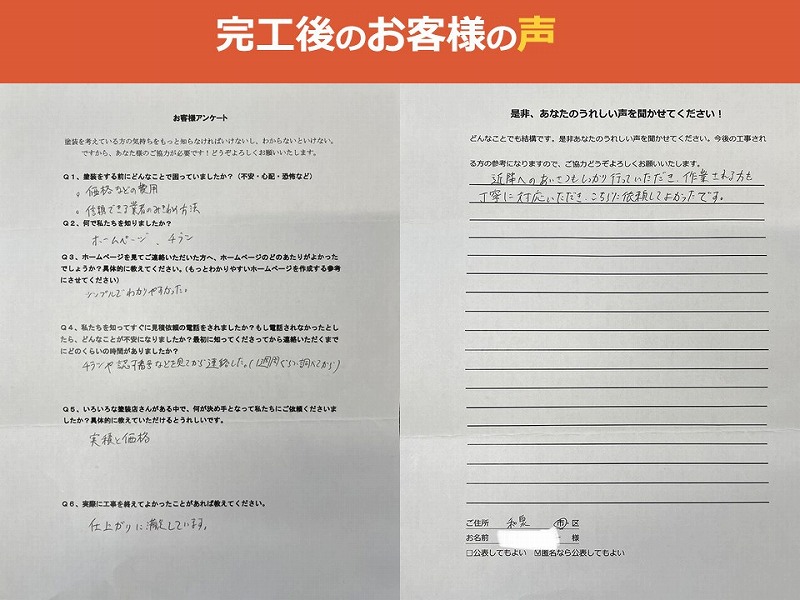 完工後のお客様の声
お客様アンケート
塗装を考えている方の気持ちをもっと知らなければいけないし、わからないといけない。
ですから、あなた様のご協力が必要です！どうぞよろしくお願いいたします。
Q1、塗装をする前にどんなことで困っていましたか？（不安・心配・恐怖など）
。価格などの費用
。信頼できる業者のみきわめ方法
Q2、何で私たちを知りましたか？
ホームページ、チラシ
Q3、ホームページを見てご連絡いただいた方へ、ホームページのどのあたりがよかった
でしょうか？具体的に教えてください。（もっとわかりやすいホームページを作成する参考
にさせてください）
シンプルでわかりやすかった。
Q4、私たちを知ってすぐに見積依頼の電話をされましたか？もし電話されなかったとし
たら、どんなことが不安になりましたか？最初に知ってくださってから連絡いただくまで
にどのくらいの時間がありましたか？
チラシや認可番号などを見てから連絡した。（1週間ぐらい調べてから）
Q5、いろいろな塗装店さんがある中で、何が決め手となって私たちにご依頼くださいま
したか？具体的に教えていただけるとうれしいです。
実績と価格
Q6、実際に工事を終えてよかったことがあれば教えてください。
仕上がりに満足しています。
是非、あなたのうれしい声を聞かせてください！
どんなことでも結構です。是非あなたのうれしい声を聞かせてください。今後の工事され
る方の参考になりますので、ご協力どうぞよろしくお願いいたします。
近隣へのあいさつもしっかり行っていただき、作業される方も
丁寧に対応いただき、こちらに依頼してよかったです。
ご住所 和泉 市 区
お名前 様
□公表してもよい ☑匿名なら公表してもよい